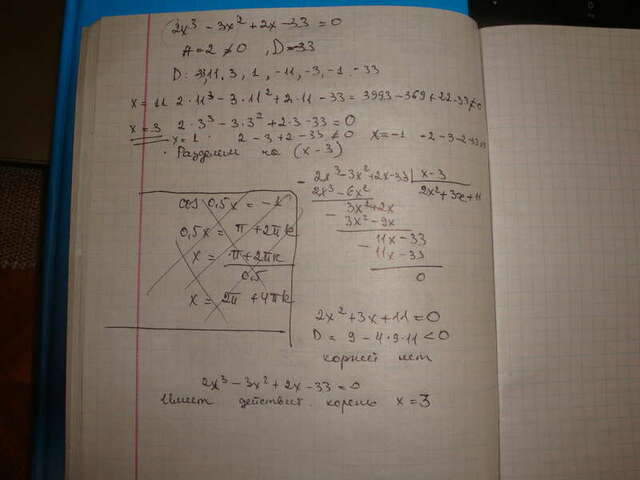 2x³ - 3x² + 2x - 33 = 0
A = 2 ≠ 0, D = -33
D: 11, 3, 1, -11, -3, -1, -33
x = 11 2·11³ - 3·11² + 2·11 - 33 = 3993 - 369 + 22 - 33 ≠ 0
x = 3 2·3³ - 3·3² + 2·3 - 33 = 0
x = 1 2 - 3 + 2 - 33 ≠ 0 x = -1 -2 - 3 - 2 - 33
Разделим на (x - 3)
2x³ - 3x² + 2x - 33 | x - 3
2x³ - 6x² 2x² + 3x + 11
3x² + 2x
3x² - 9x
11x - 33
11x - 33
0
cos 0,5x = -1
0,5x = π + 2πk
x = π + 2πk
0,5
x = 2π + 4πk
2x² + 3x + 11 = 0
D = 9 - 4·2·11 < 0
корней нет
2x³ - 3x² + 2x - 33 = 0
Имеет действит. корень x = 3